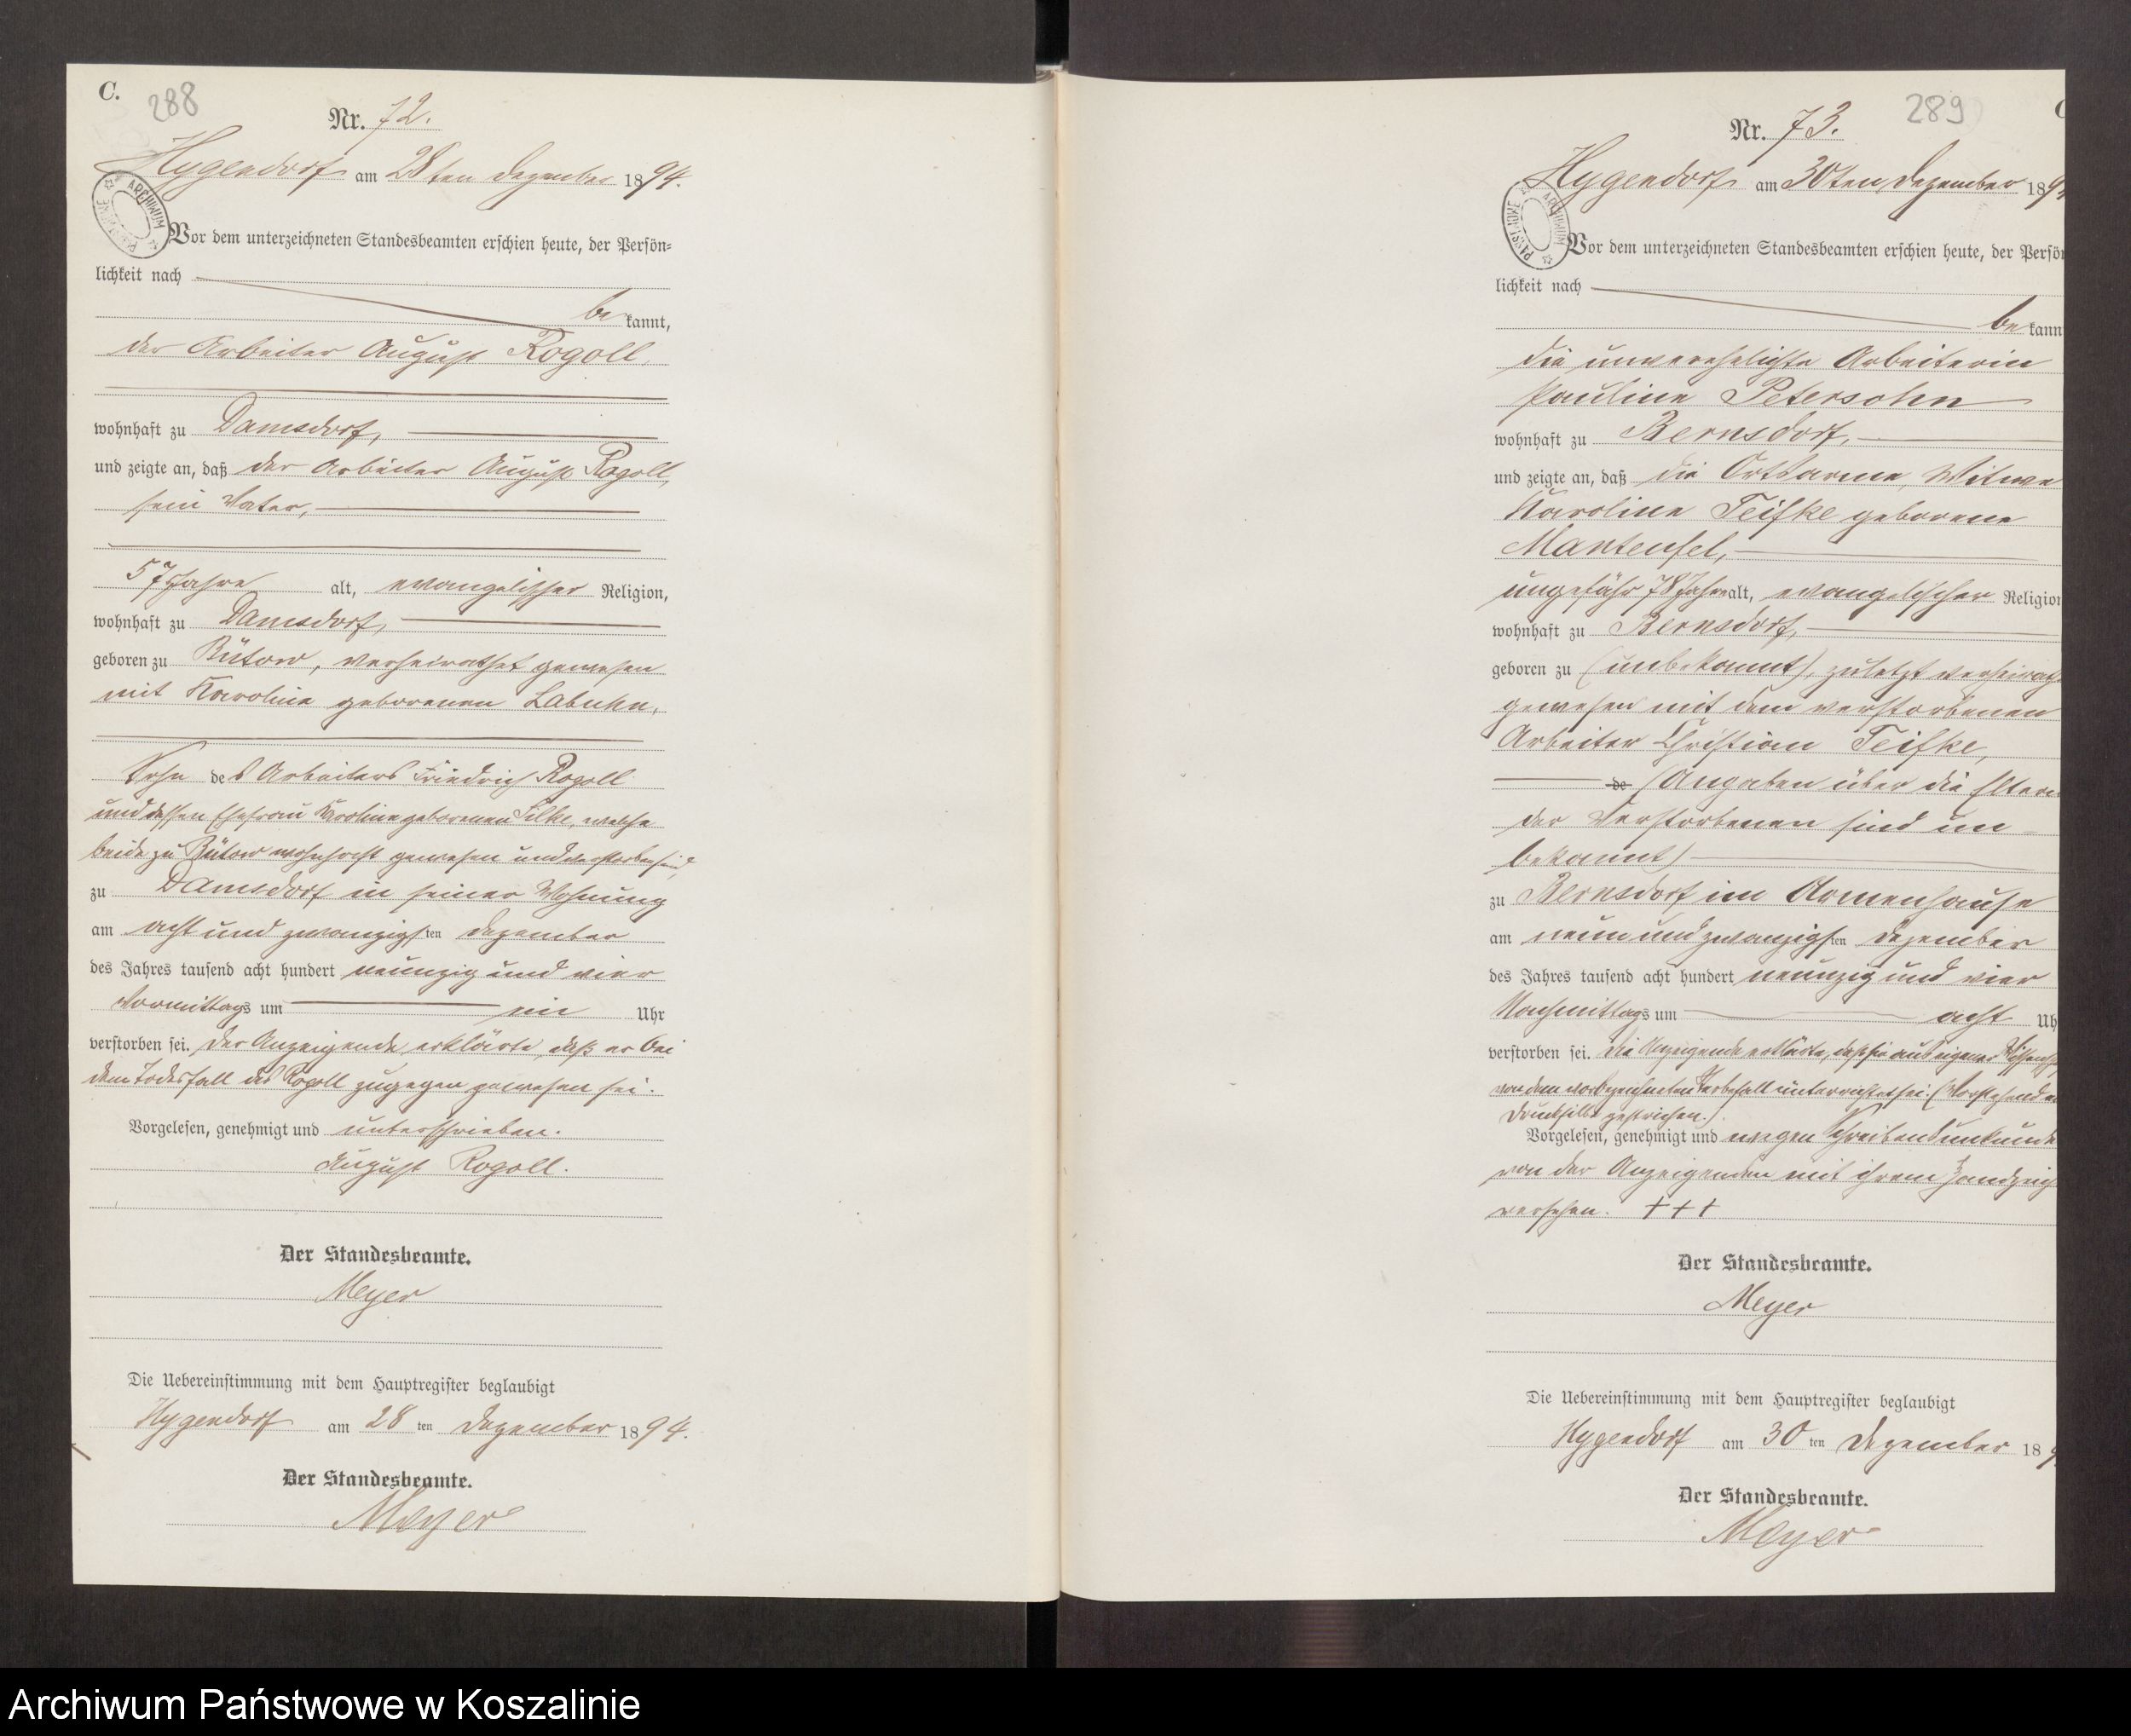 C.
288
Nr. 72.
Hygendorf am 28ten Dezember 1894.
Vor dem unterzeichneten Standesbeamten erschien heute, der Persön=
lichkeit nach
be kannt,
der Arbeiter August Rogoll,
wohnhaft zu Damsdorf,
und zeigte an, daß der Arbeiter August Rogoll,
sein Vater,
57 Jahre alt, evangelischer Religion,
wohnhaft zu Damsdorf,
geboren zu Bütow, verheirathet gewesen
mit Karoline geborenen Labuhn,
Sohn des Arbeiters Friedrich Rogoll
und dessen Ehefrau Karoline geborenen Silke, welche
beide zu Bütow wohnhaft gewesen und verstorben sind,
zu Damsdorf in seiner Wohnung
am acht und zwanzigsten Dezember
des Jahres tausend acht hundert neunzig und vier
Vormittags um ein Uhr
verstorben sei. Der Anzeigende erklärte, daß er bei
dem Todesfall des Rogoll zugegen gewesen sei.
Vorgelesen, genehmigt und unterschrieben.
August Rogoll.
Der Standesbeamte.
Meyer
Die Uebereinstimmung mit dem Hauptregister beglaubigt
Hygendorf am 28 ten Dezember 1894.
Der Standesbeamte.
Meyer
289
C
Nr. 73.
Hygendorf am 30ten Dezember 189
Vor dem unterzeichneten Standesbeamten erschien heute, der Persön
lichkeit nach
be kann
die unverehelichte Arbeiterin
Pauline Petersohn
wohnhaft zu Bernsdorf,
und zeigte an, daß die Ortsarme, Witwe
Karoline Teifke geborene
Manteufel,
ungefähr 78 Jahre alt, evangelischer Religion
wohnhaft zu Bernsdorf,
geboren zu (unbekannt), zuletzt verheirath
gewesen mit dem verstorbenen
Arbeiter Christian Teifke,
de (Angaben über die Eltern
der Verstorbenen sind un=
bekannt)
zu Bernsdorf im Armenhause
am neun und zwanzigsten Dezember
des Jahres tausend acht hundert neunzig und vier
Nachmittags um acht Uh
verstorben sei. Die Anzeigende erklärte, daß sie aus eigener Wissensch
von dem vorbezeichneten Sterbefall unterrichtet sei. (Vorstehend
Drucksilbe gestrichen.)
Vorgelesen, genehmigt und wegen Schreibensunkunde
von der Anzeigenden mit ihrem Handzeich
versehen. +++
Der Standesbeamte.
Meyer
Die Uebereinstimmung mit dem Hauptregister beglaubigt
Hygendorf am 30 ten Dezember 189
Der Standesbeamte.
Meyer
Archiwum Państwowe w Koszalinie